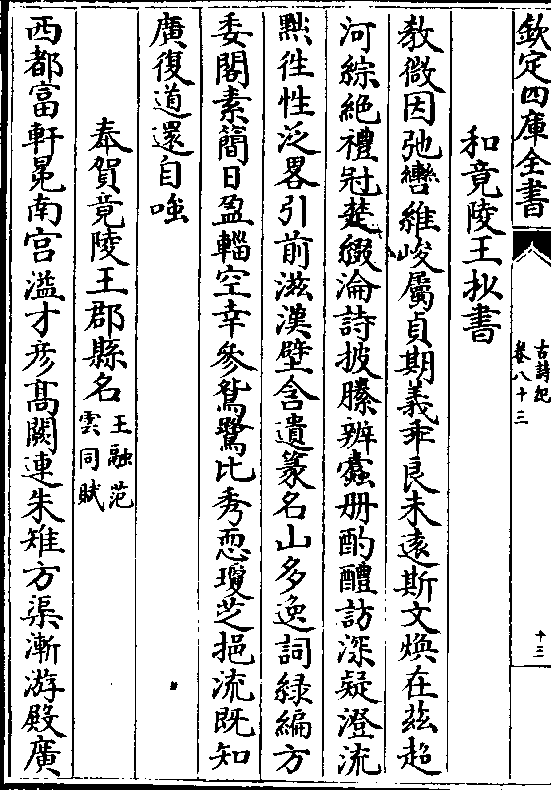 欽定四庫全書
古詩紀
卷八十三
十三
和竟陵王抄書
教微因弛轡維峻屬貞期義乖良未遠斯文煥在兹超
河綜絶禮冠楚綴淪詩披縢辨蠹册酌醴訪深疑澄流
黙徃性泛畧引前滋漢壁含遺篆名山多逸詞緑編方
委閣素簡日盈輜空幸參鴛鷺比秀恧瓊芝挹流既知
廣復道還自嗤
奉賀竟陵王郡縣名王融范雲同賦
西都富軒冕南宫溢才彦髙闕連朱雉方渠漸游殿廣